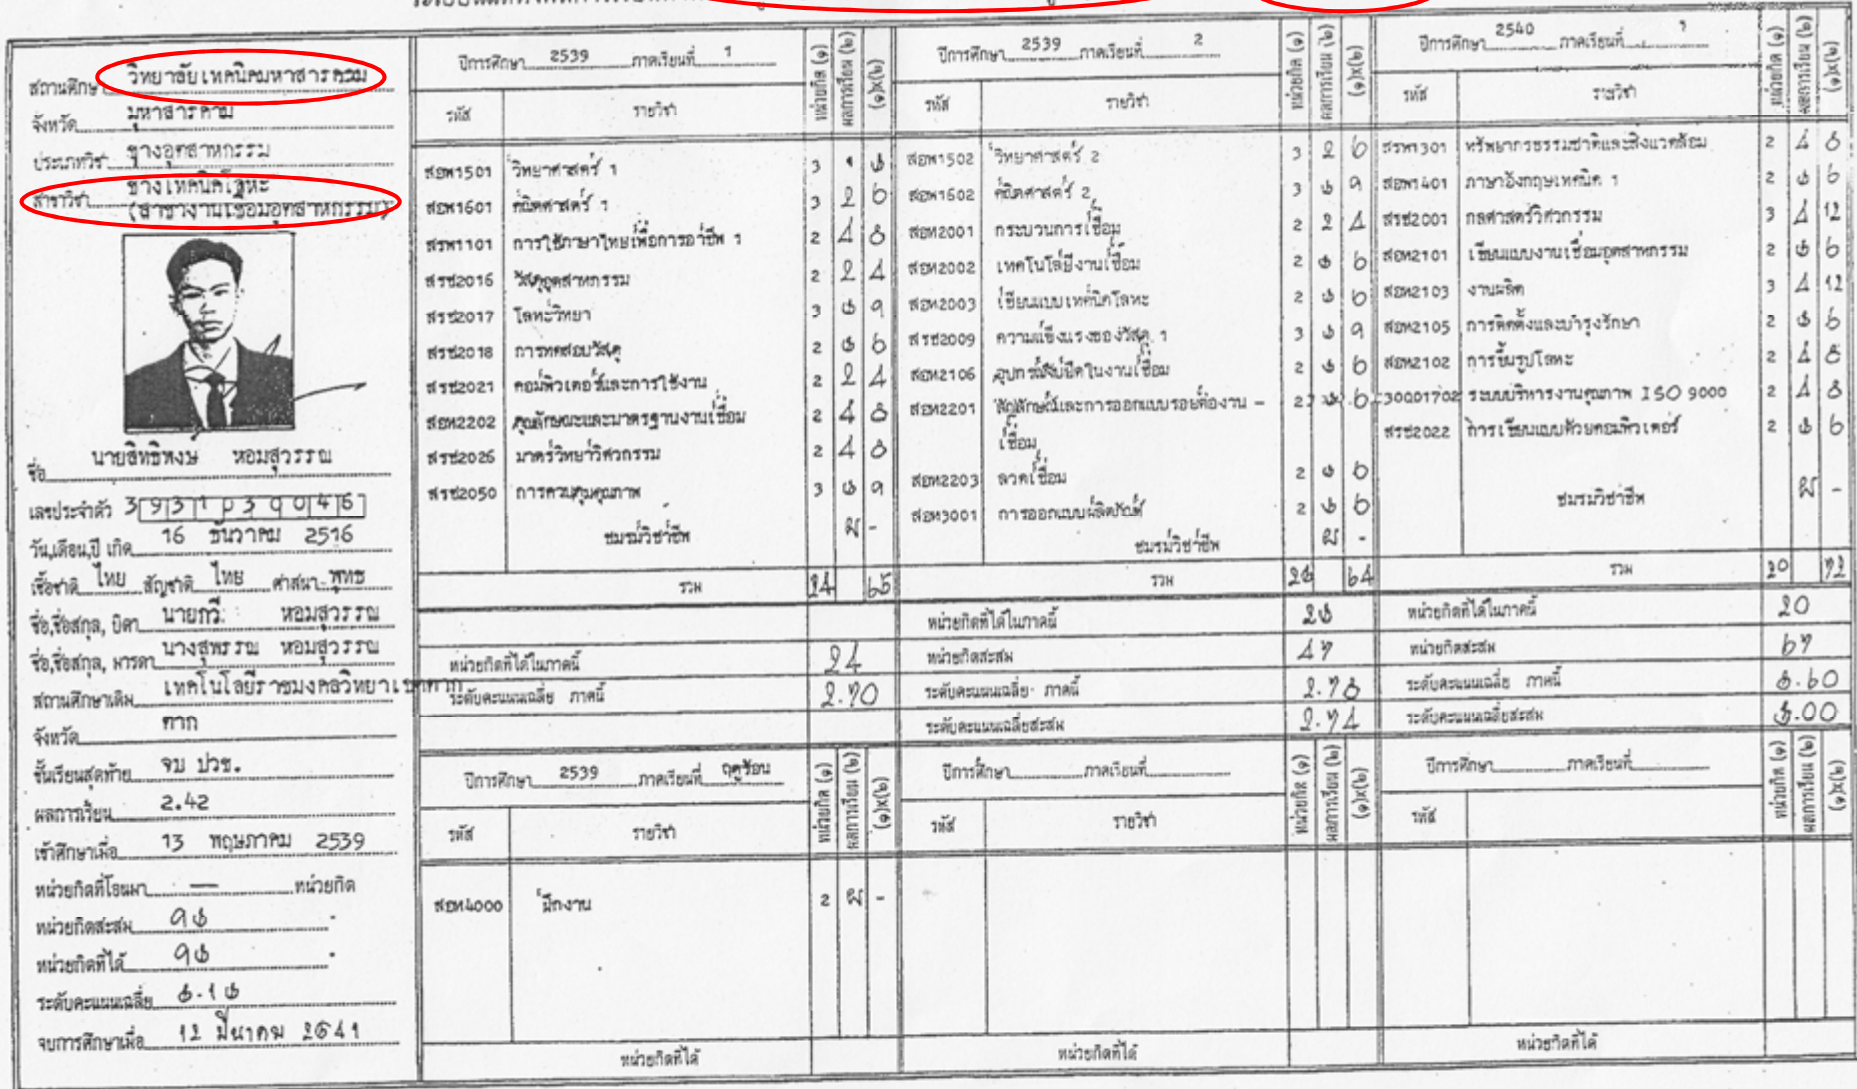 สถานศึกษา วิทยาลัยเทคนิคมหาสารคาม
จังหวัด มหาสารคาม
ประเภทวิชา ช่างอุตสาหกรรม
สาขาวิชา ช่างเทคนิคโลหะ
(สาขางานเชื่อมอุตสาหกรรม)
ชื่อ นายสิทธิพงษ์ หอมสุวรรณ
เลขประจำตัว 3931030046
วัน,เดือน,ปี เกิด 16 ธันวาคม 2516
เชื้อชาติ ไทย สัญชาติ ไทย ศาสนา พุทธ
ชื่อ,ชื่อสกุล, บิดา นายกวี หอมสุวรรณ
ชื่อ,ชื่อสกุล, มารดา นางสุพรรณ หอมสุวรรณ
สถานศึกษาเดิม เทคโนโลยีราชมงคลวิทยาเขตตาก
จังหวัด ตาก
ชั้นเรียนสุดท้าย จบ ปวช.
ผลการเรียน 2.42
เข้าศึกษาเมื่อ 13 พฤษภาคม 2539
หน่วยกิตที่โอนมา — หน่วยกิต
หน่วยกิตสะสม ๙๓
หน่วยกิตที่ได้ ๙๓
ระดับคะแนนเฉลี่ย ๓.1๓
จบการศึกษาเมื่อ 12 มีนาคม 2541
ปีการศึกษา 2539 ภาคเรียนที่ 1
รหัส รายวิชา หน่วยกิต (๑) ผลการเรียน (๒) (๑)x(๒)
สอพ1501 วิทยาศาสตร์ 1 3 1 ๓
สอพ1601 คณิตศาสตร์ 1 3 2 ๖
สรพ1101 การใช้ภาษาไทยเพื่อการอาชีพ 1 2 4 8
สรช2016 วัสดุอุตสาหกรรม 2 2 4
สรช2017 โลหะวิทยา 3 ๓ ๙
สรช2018 การทดสอบวัสดุ 2 ๓ ๖
สรช2021 คอมพิวเตอร์และการใช้งาน 2 2 4
สอห2202 คุณลักษณะและมาตรฐานงานเชื่อม 2 4 8
สรช2026 มาตรวิทยาวิศวกรรม 2 4 8
สรช2050 การควบคุมคุณภาพ 3 ๓ ๙
ชมรมวิชาชีพ ผ -
รวม 24 65
หน่วยกิตที่ได้ในภาคนี้ 24
ระดับคะแนนเฉลี่ย ภาคนี้ 2.70
ปีการศึกษา 2539 ภาคเรียนที่ 2
รหัส รายวิชา หน่วยกิต (๑) ผลการเรียน (๒) (๑)x(๒)
สอพ1502 วิทยาศาสตร์ 2 3 2 ๖
สอพ1602 คณิตศาสตร์ 2 3 ๓ ๙
สอห2001 กระบวนการเชื่อม 2 2 4
สอห2002 เทคโนโลยีงานเชื่อม 2 ๓ ๖
สอห2003 เขียนแบบเทคนิคโลหะ 2 ๓ ๖
สรช2009 ความแข็งแรงของวัสดุ 1 3 ๓ ๙
สอห2106 อุปกรณ์จับยึดในงานเชื่อม 2 ๓ ๖
สอห2201 สัญลักษณ์และการออกแบบรอยต่องาน – 2 ๓ ๖
เชื่อม
สอห2203 ลวดเชื่อม 2 ๓ ๖
สอห3001 การออกแบบผลิตภัณฑ์ 2 ๓ ๖
ชมรมวิชาชีพ ผ -
รวม 2๓ 64
หน่วยกิตที่ได้ในภาคนี้ 2๓
หน่วยกิตสะสม 47
ระดับคะแนนเฉลี่ย ภาคนี้ 2.78
ระดับคะแนนเฉลี่ยสะสม 2.74
ปีการศึกษา 2540 ภาคเรียนที่ 1
รหัส รายวิชา หน่วยกิต (๑) ผลการเรียน (๒) (๑)x(๒)
สรพ1301 ทรัพยากรธรรมชาติและสิ่งแวดล้อม 2 4 8
สอพ1401 ภาษาอังกฤษเทคนิค 1 2 ๓ ๖
สรช2001 กลศาสตร์วิศวกรรม 3 4 12
สอห2101 เขียนแบบงานเชื่อมอุตสาหกรรม 2 ๓ ๖
สอห2103 งานผลิต 3 4 12
สอห2105 การติดตั้งและบำรุงรักษา 2 ๓ ๖
สอห2102 การขึ้นรูปโลหะ 2 4 8
30001702 ระบบบริหารงานคุณภาพ ISO 9000 2 4 8
สรช2022 การเขียนแบบด้วยคอมพิวเตอร์ 2 ๓ ๖
ชมรมวิชาชีพ ผ -
รวม 20 72
หน่วยกิตที่ได้ในภาคนี้ 20
หน่วยกิตสะสม 67
ระดับคะแนนเฉลี่ย ภาคนี้ ๓.60
ระดับคะแนนเฉลี่ยสะสม ๓.00
ปีการศึกษา 2539 ภาคเรียนที่ ฤดูร้อน
รหัส รายวิชา หน่วยกิต (๑) ผลการเรียน (๒) (๑)x(๒)
สอห4000 ฝึกงาน 2 ผ -
หน่วยกิตที่ได้
ปีการศึกษา ภาคเรียนที่
รหัส รายวิชา หน่วยกิต (๑) ผลการเรียน (๒) (๑)x(๒)
หน่วยกิตที่ได้
ปีการศึกษา ภาคเรียนที่
รหัส หน่วยกิต (๑) ผลการเรียน (๒) (๑)x(๒)
หน่วยกิตที่ได้